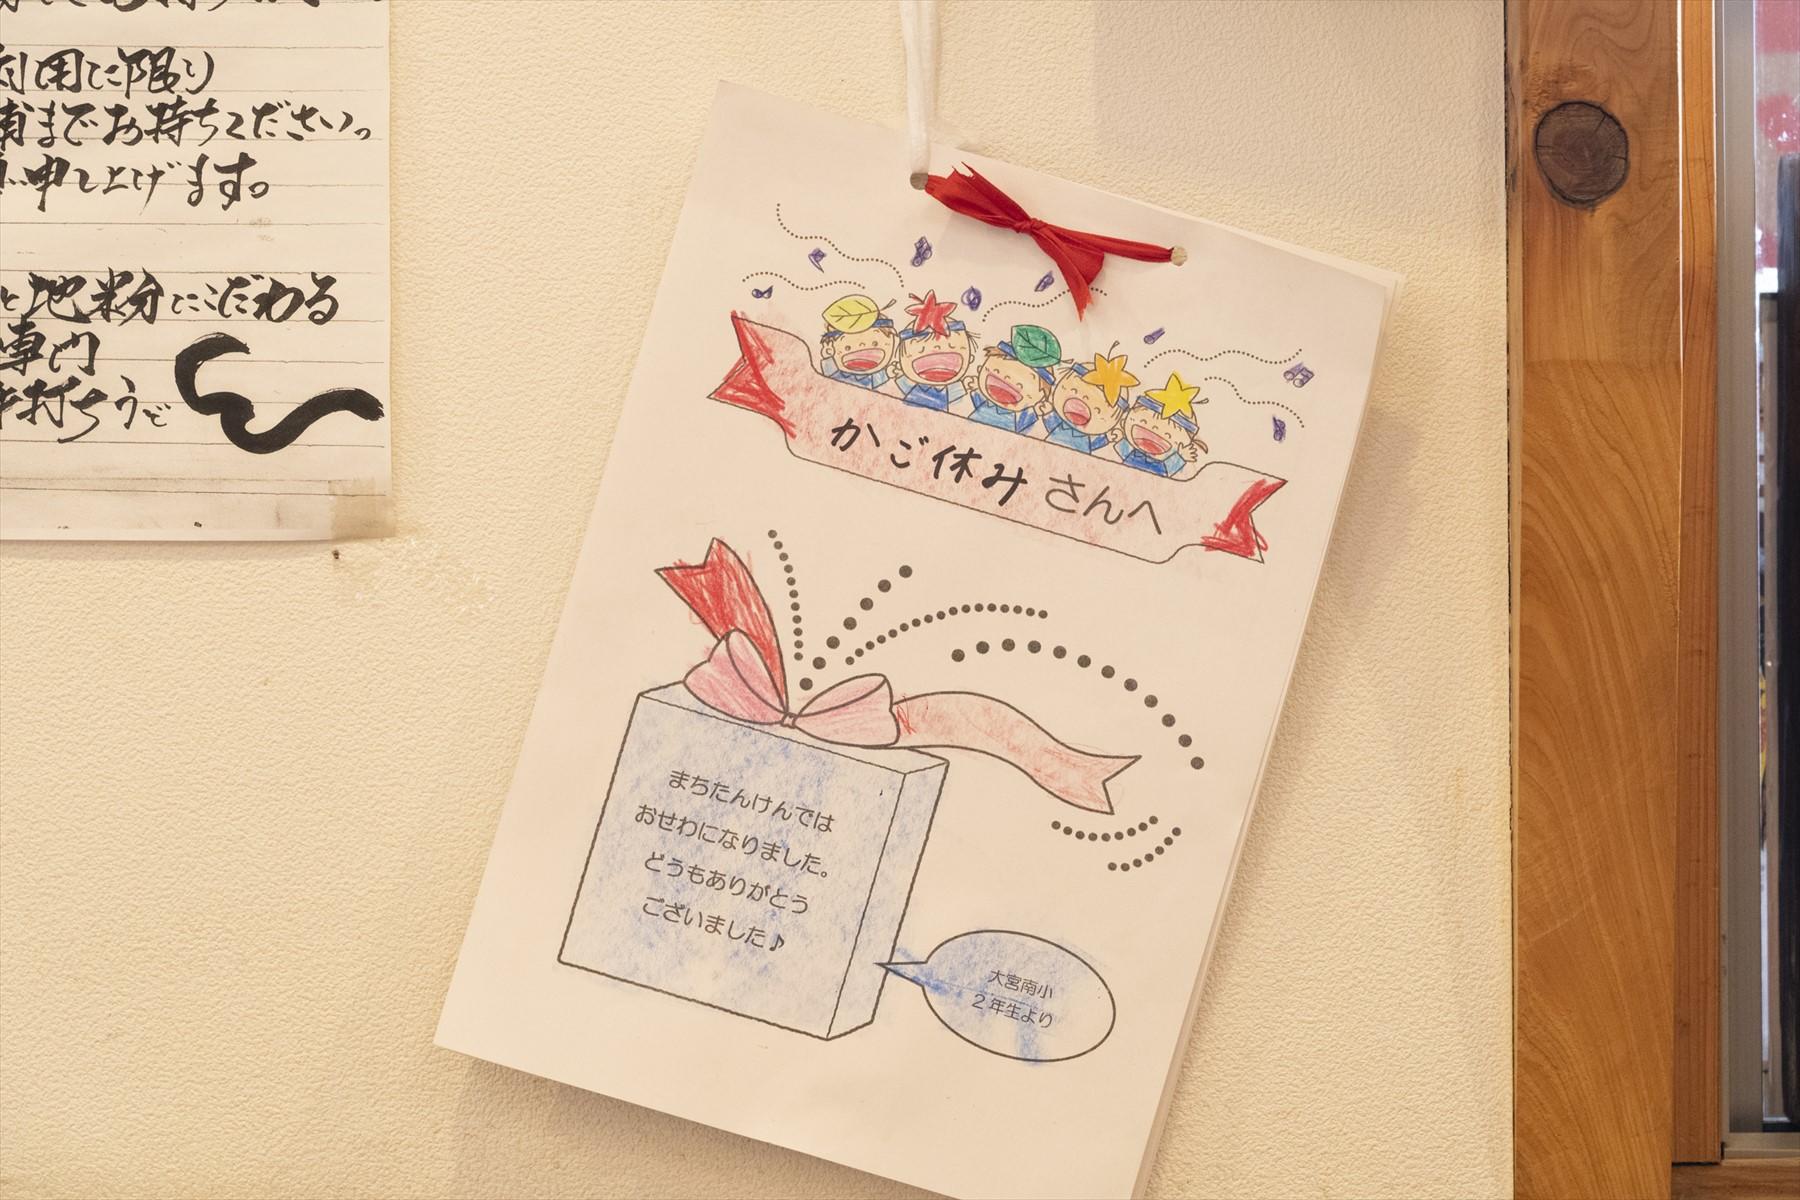 利用に限り
までお持ちください。
申し上げます。
と地粉にこだわる
専門
手打ちうどん
かご休みさんへ
まちたんけんでは
おせわになりました。
どうもありがとう
ございました♪
大宮南小
2年生より